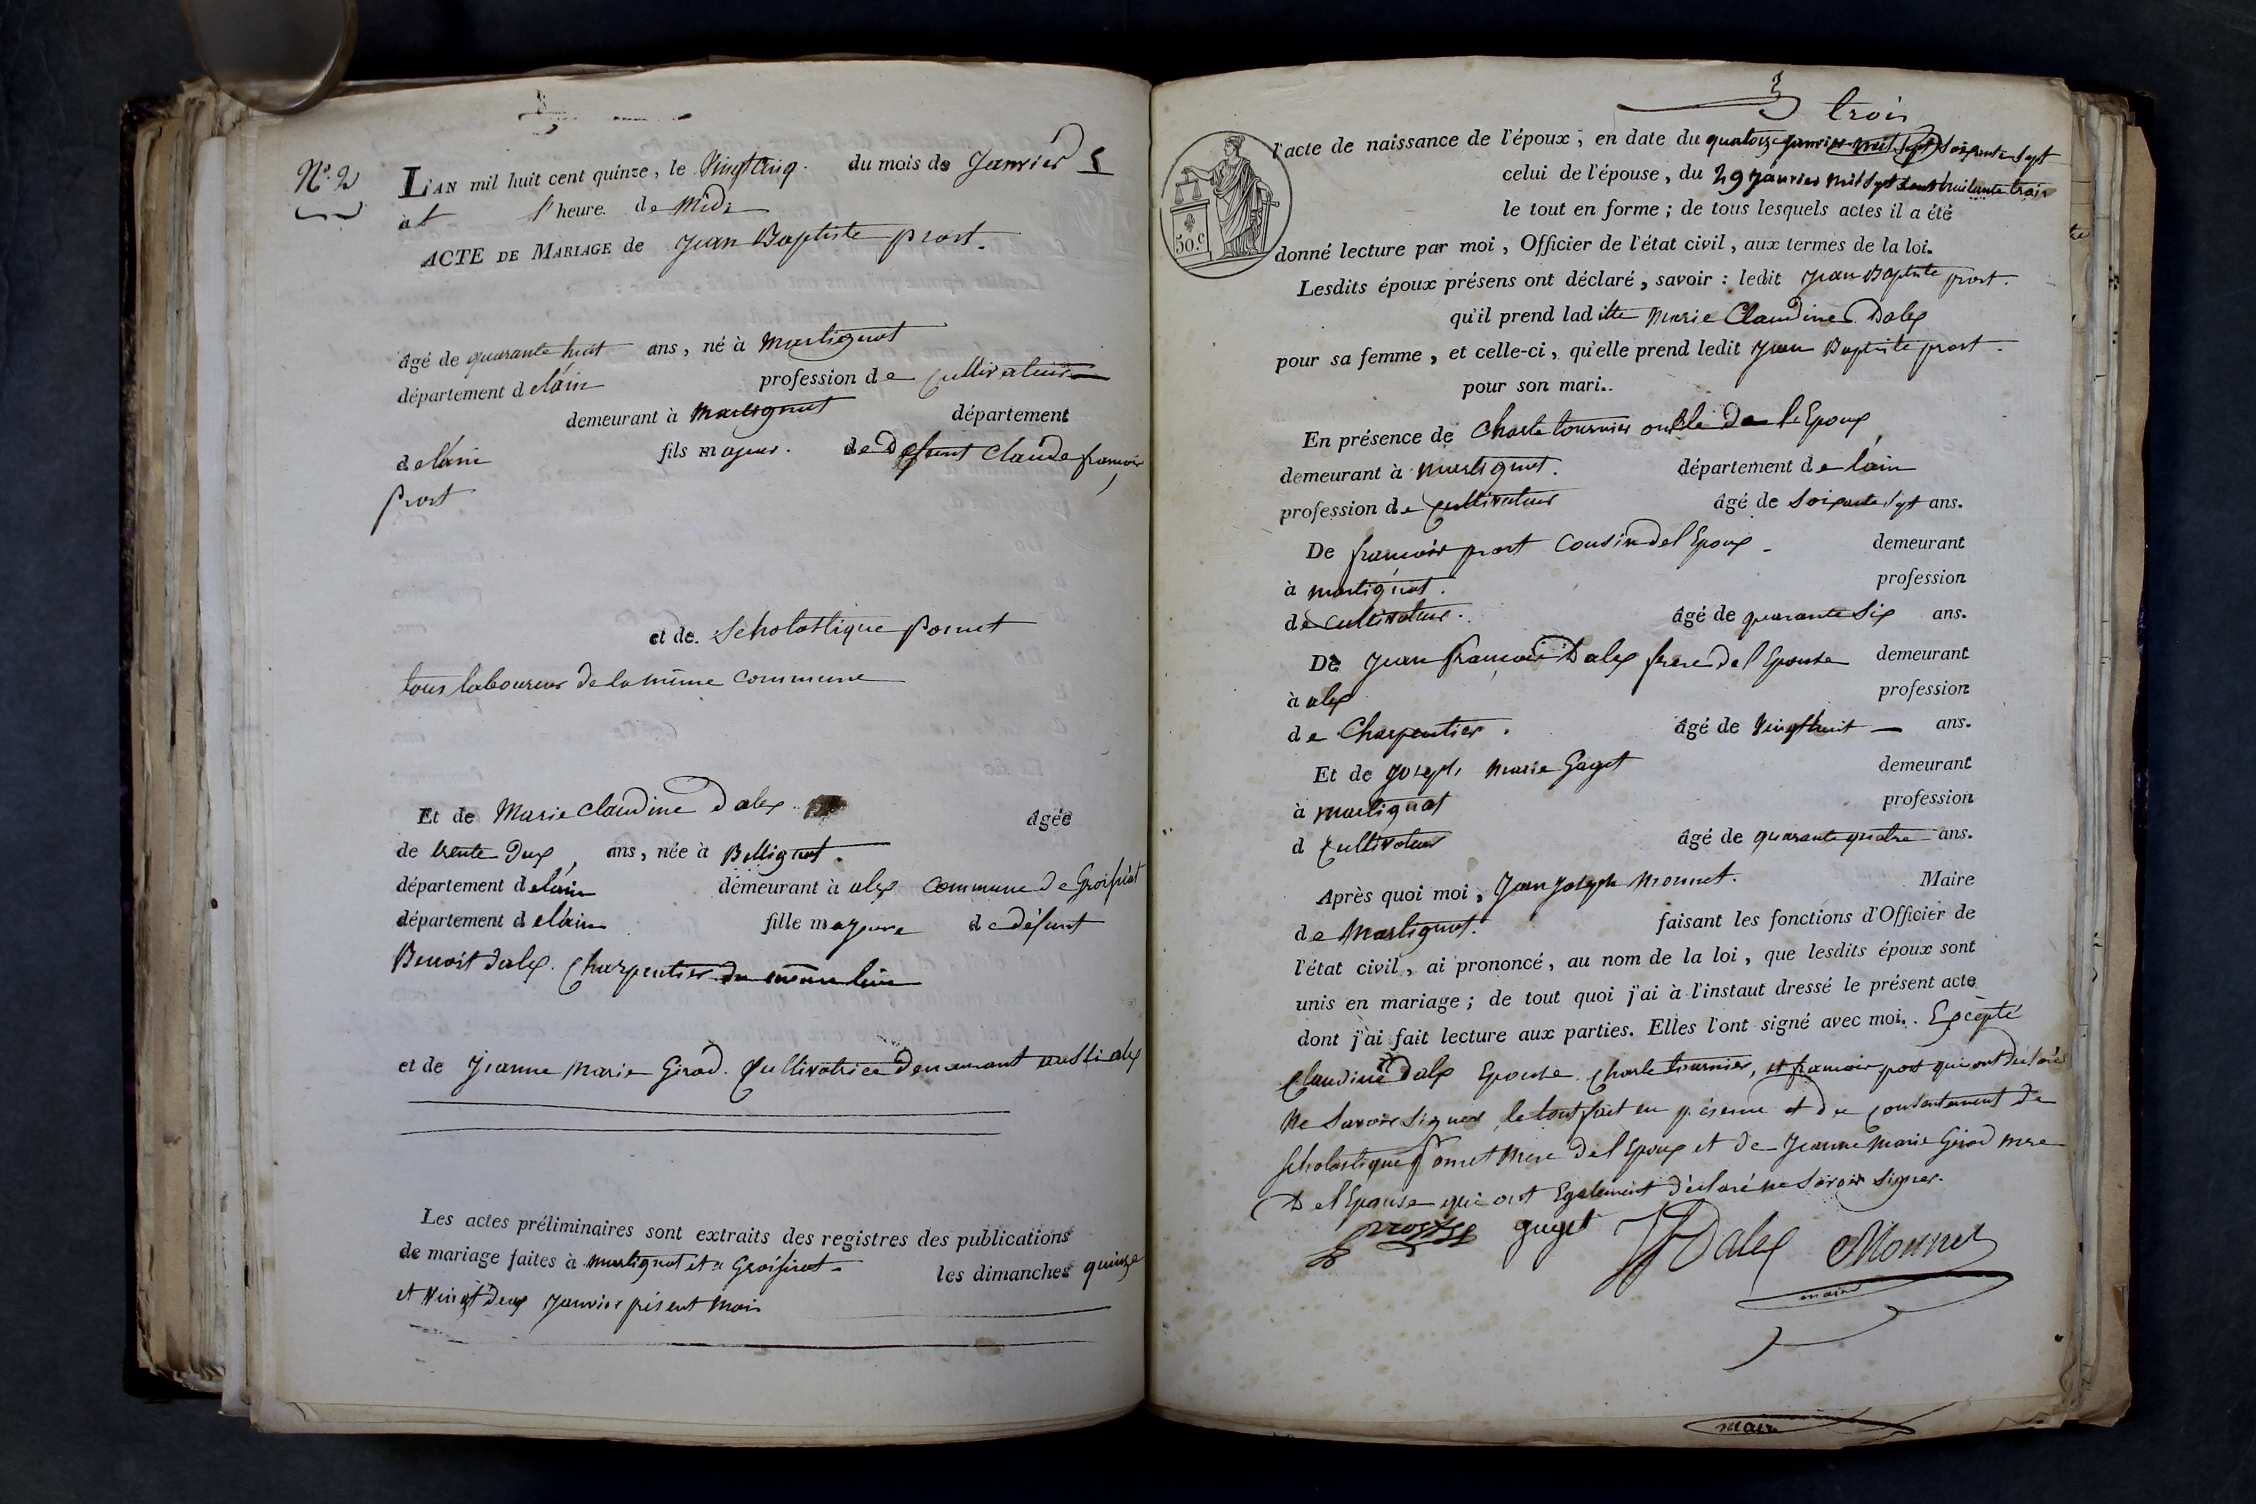 N.° 2
L'AN mil huit cent quinze, le Vingt cinq. du mois de Janvier
à l'heure de Midi
ACTE DE MARIAGE de Jean Baptiste prost.
âgé de quarante huit ans, né à Martignat
département de láin profession de Cultivateur
demeurant à Martignat département
de láin fils majeur. de Defunt Claude francois
Prost
et de Scholastique Pornet
tous laboureur de la même Commune
Et de Marie Claudine Dalex âgée
de trente Dux, ans, née à Bellignat.
département de láin demeurant à alex Commune de Groissiat
département de láin fille majeure de défunt
Benoit dalex. Charpentier du même lieu
et de Jeanne Marie Girod. Cultivatrice Demeurant aussi alex
Les actes préliminaires sont extraits des registres des publications
de mariage faites à Martignat et a Groissiat les dimanches quinze
et Vingt Deux Janvier présent Mois
trois
50.c
l'acte de naissance de l'époux, en date du quatorze janvier mil Sept Soixante Sept
celui de l'épouse, du 29 Janvier Mil Sept Cent huitante trois
le tout en forme; de tous lesquels actes il a été
donné lecture par moi, Officier de l'état civil, aux termes de la loi.
Lesdits époux présens ont déclaré, savoir: ledit Jean Baptiste prost.
qu'il prend ladite Marie Claudine Dalex
pour sa femme, et celle-ci, qu'elle prend ledit Jean Baptiste prost.
pour son mari.
En présence de Charle tournier oncle De l'Epoux
demeurant à Martignat. département de láin
profession de Cultivateur âgé de Soixante Sept ans.
De francois prost Cousin del Epoux demeurant
à Martignat. profession
de Cultivateur. âgé de quarante Six ans.
De Jean francois Dalex frere de l Epouse demeurant
à alex profession
de Charpentier. âgé de Vingt huit ans.
Et de Joseph Marie Gaget demeurant
à Martignat profession
d Cultivateur âgé de quarante quatre ans.
Après quoi moi, Jean Joseph Monnet. Maire
de Martignat. faisant les fonctions d'Officier de
l'état civil, ai prononcé, au nom de la loi, que lesdits époux sont
unis en mariage; de tout quoi j'ai à l'instaut dressé le présent acte
dont j'ai fait lecture aux parties. Elles l'ont signé avec moi. Excepté
Claudine Dalex Epouse. Charle tournier, et francois prost qui ont déclaré
Ne Savoir Signer, le tout fait en présence et du Consentement De
Scholastique Pornet Mere del Epoux et de Jeanne Marie Girod mere
Del Epouse qui ont Egalement déclaré ne Savoir Signer.
prost gaget JF Dalex Monnet
maire
maire